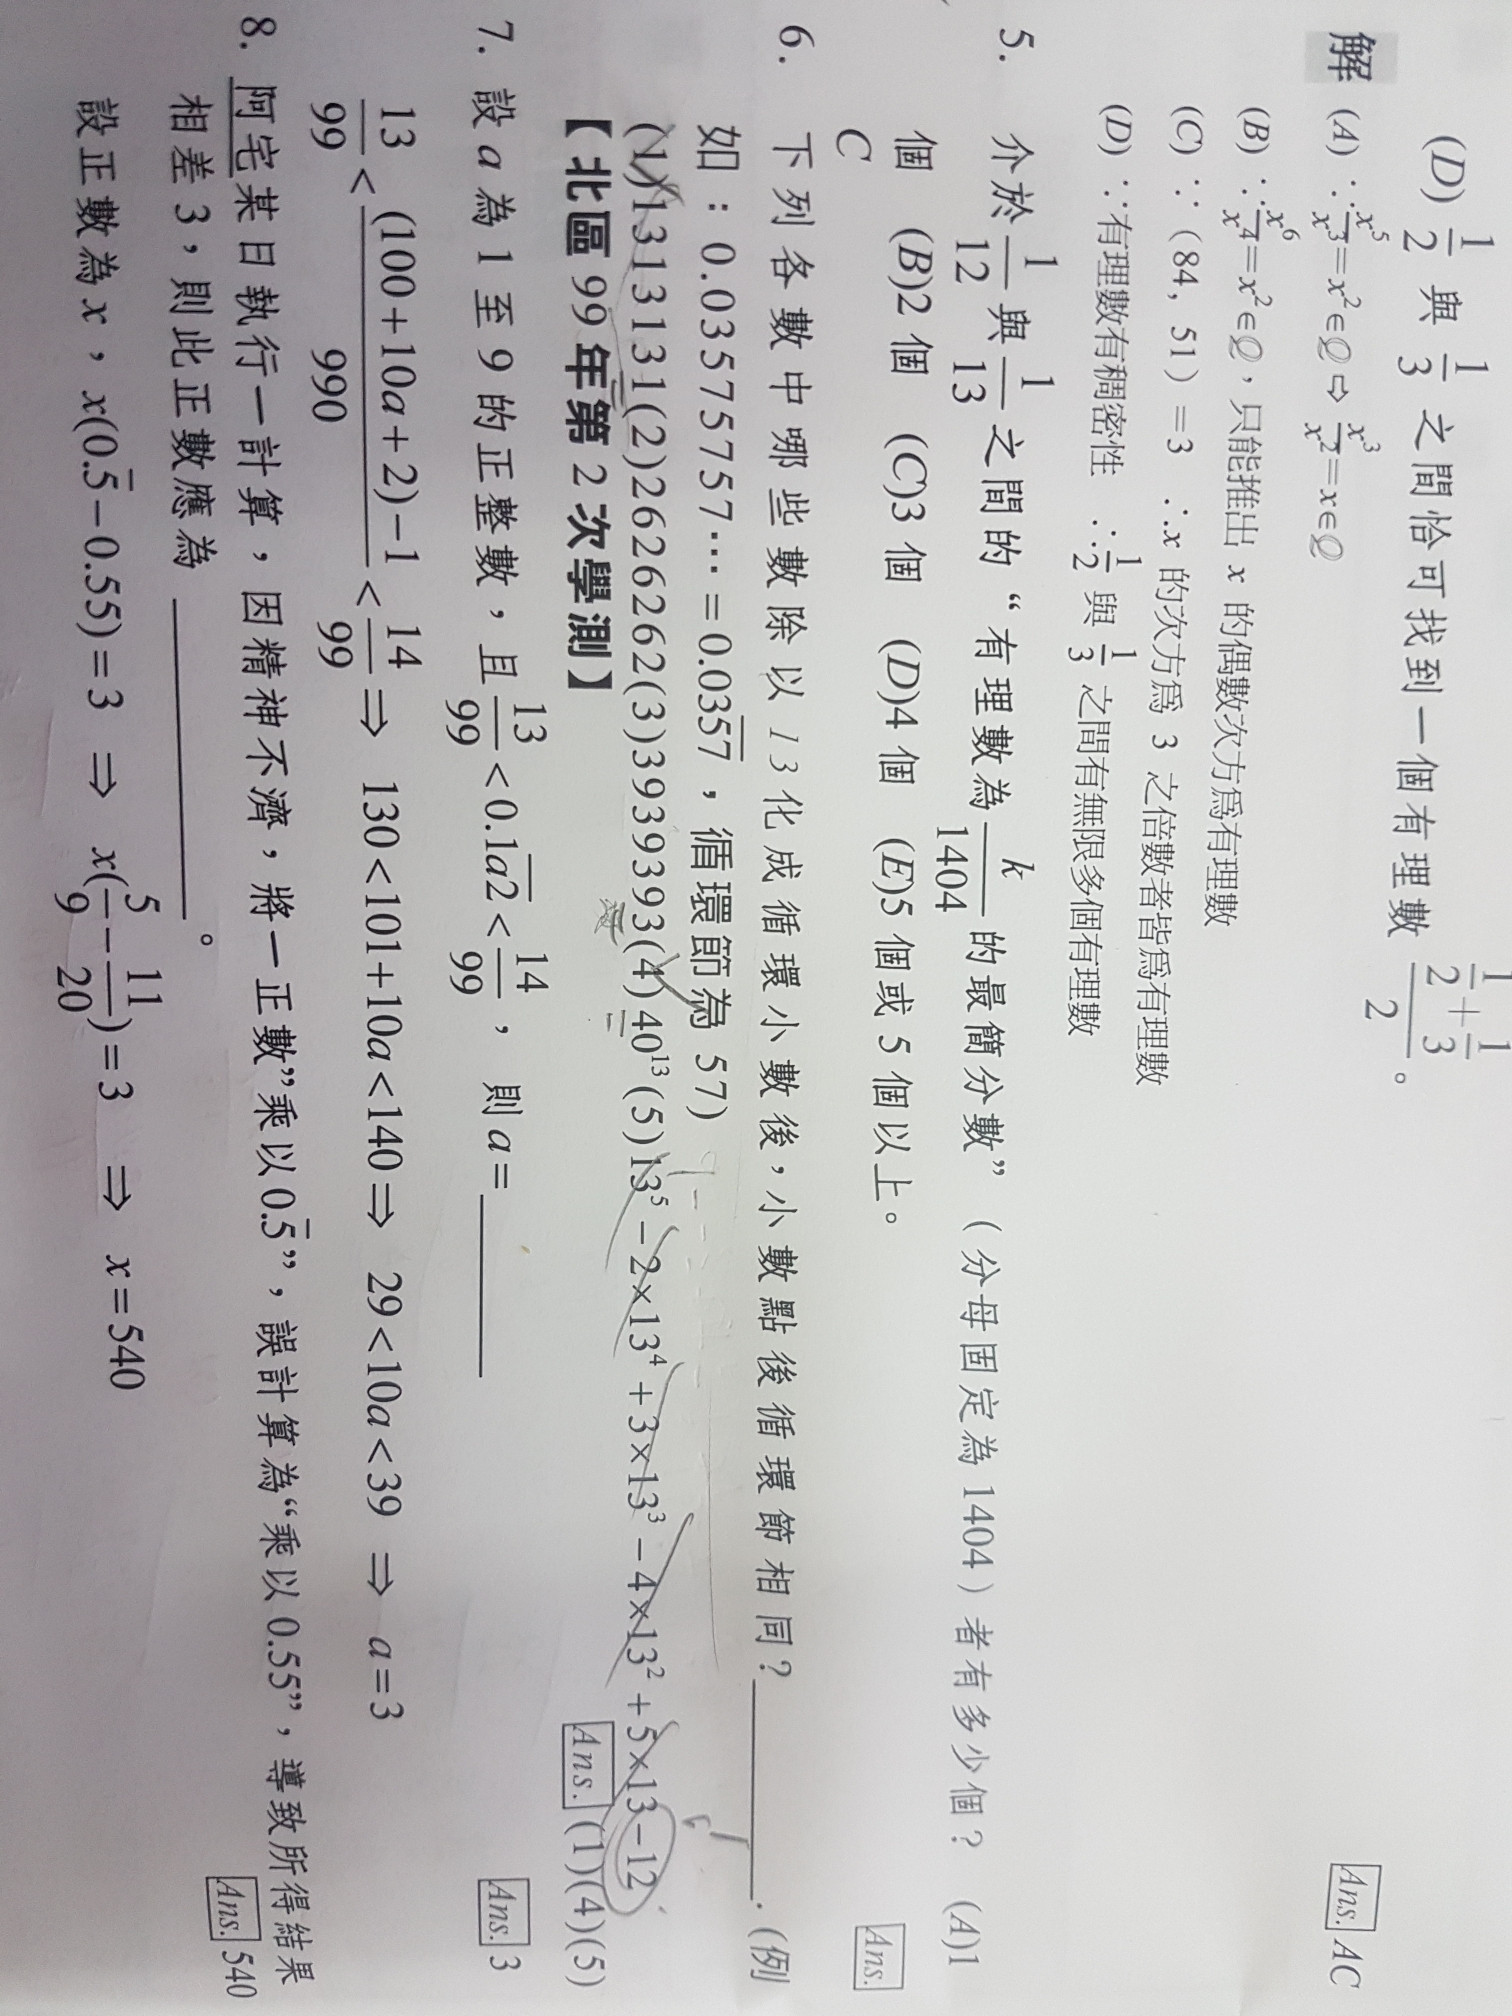 (D) 1/2 與 1/3 之間恰可找到一個有理數 (1/2+1/3)/2 。
解 (A) ∵ x⁵/x³=x²∈Q ⇨ x³/x²=x∈Q
Ans. AC
(B) ∵ x⁶/x⁴=x²∈Q，只能推出 x 的偶數次方為有理數
(C) ∵ (84, 51)=3 ∴x 的次方為 3 之倍數者皆為有理數
(D) ∵有理數有稠密性 ∴1/2 與 1/3 之間有無限多個有理數
5. 介於 1/12 與 1/13 之間的“有理數為 k/1404 的最簡分數”（分母固定為 1404）者有多少個？ (A)1
個 (B)2 個 (C)3 個 (D)4 個 (E)5 個或 5 個以上。
Ans.
C
6. 下列各數中哪些數除以 13 化成循環小數後，小數點後循環節相同？________. (例
如：0.03575757⋯=0.03̅5̅7̅，循環節為 57)
(1)1313131(2)2626262(3)3939393(4)40¹³(5)13⁵−2×13⁴+3×13³−4×13²+5×13−12
【北區 99 年第 2 次學測】
Ans. (1)(4)(5)
7. 設 a 為 1 至 9 的正整數，且 13/99<0.1a̅2̅<14/99，則 a=________
Ans. 3
13/99<((100+10a+2)−1)/990<14/99 ⇒ 130<101+10a<140⇒ 29<10a<39 ⇒ a=3
8. 阿宅某日執行一計算，因精神不濟，將一正數”乘以 0.5̅”，誤計算為“乘以 0.55”，導致所得結果
相差 3，則此正數應為________。
Ans. 540
設正數為 x，x(0.5̅−0.55)=3 ⇒ x(5/9−11/20)=3 ⇒ x=540